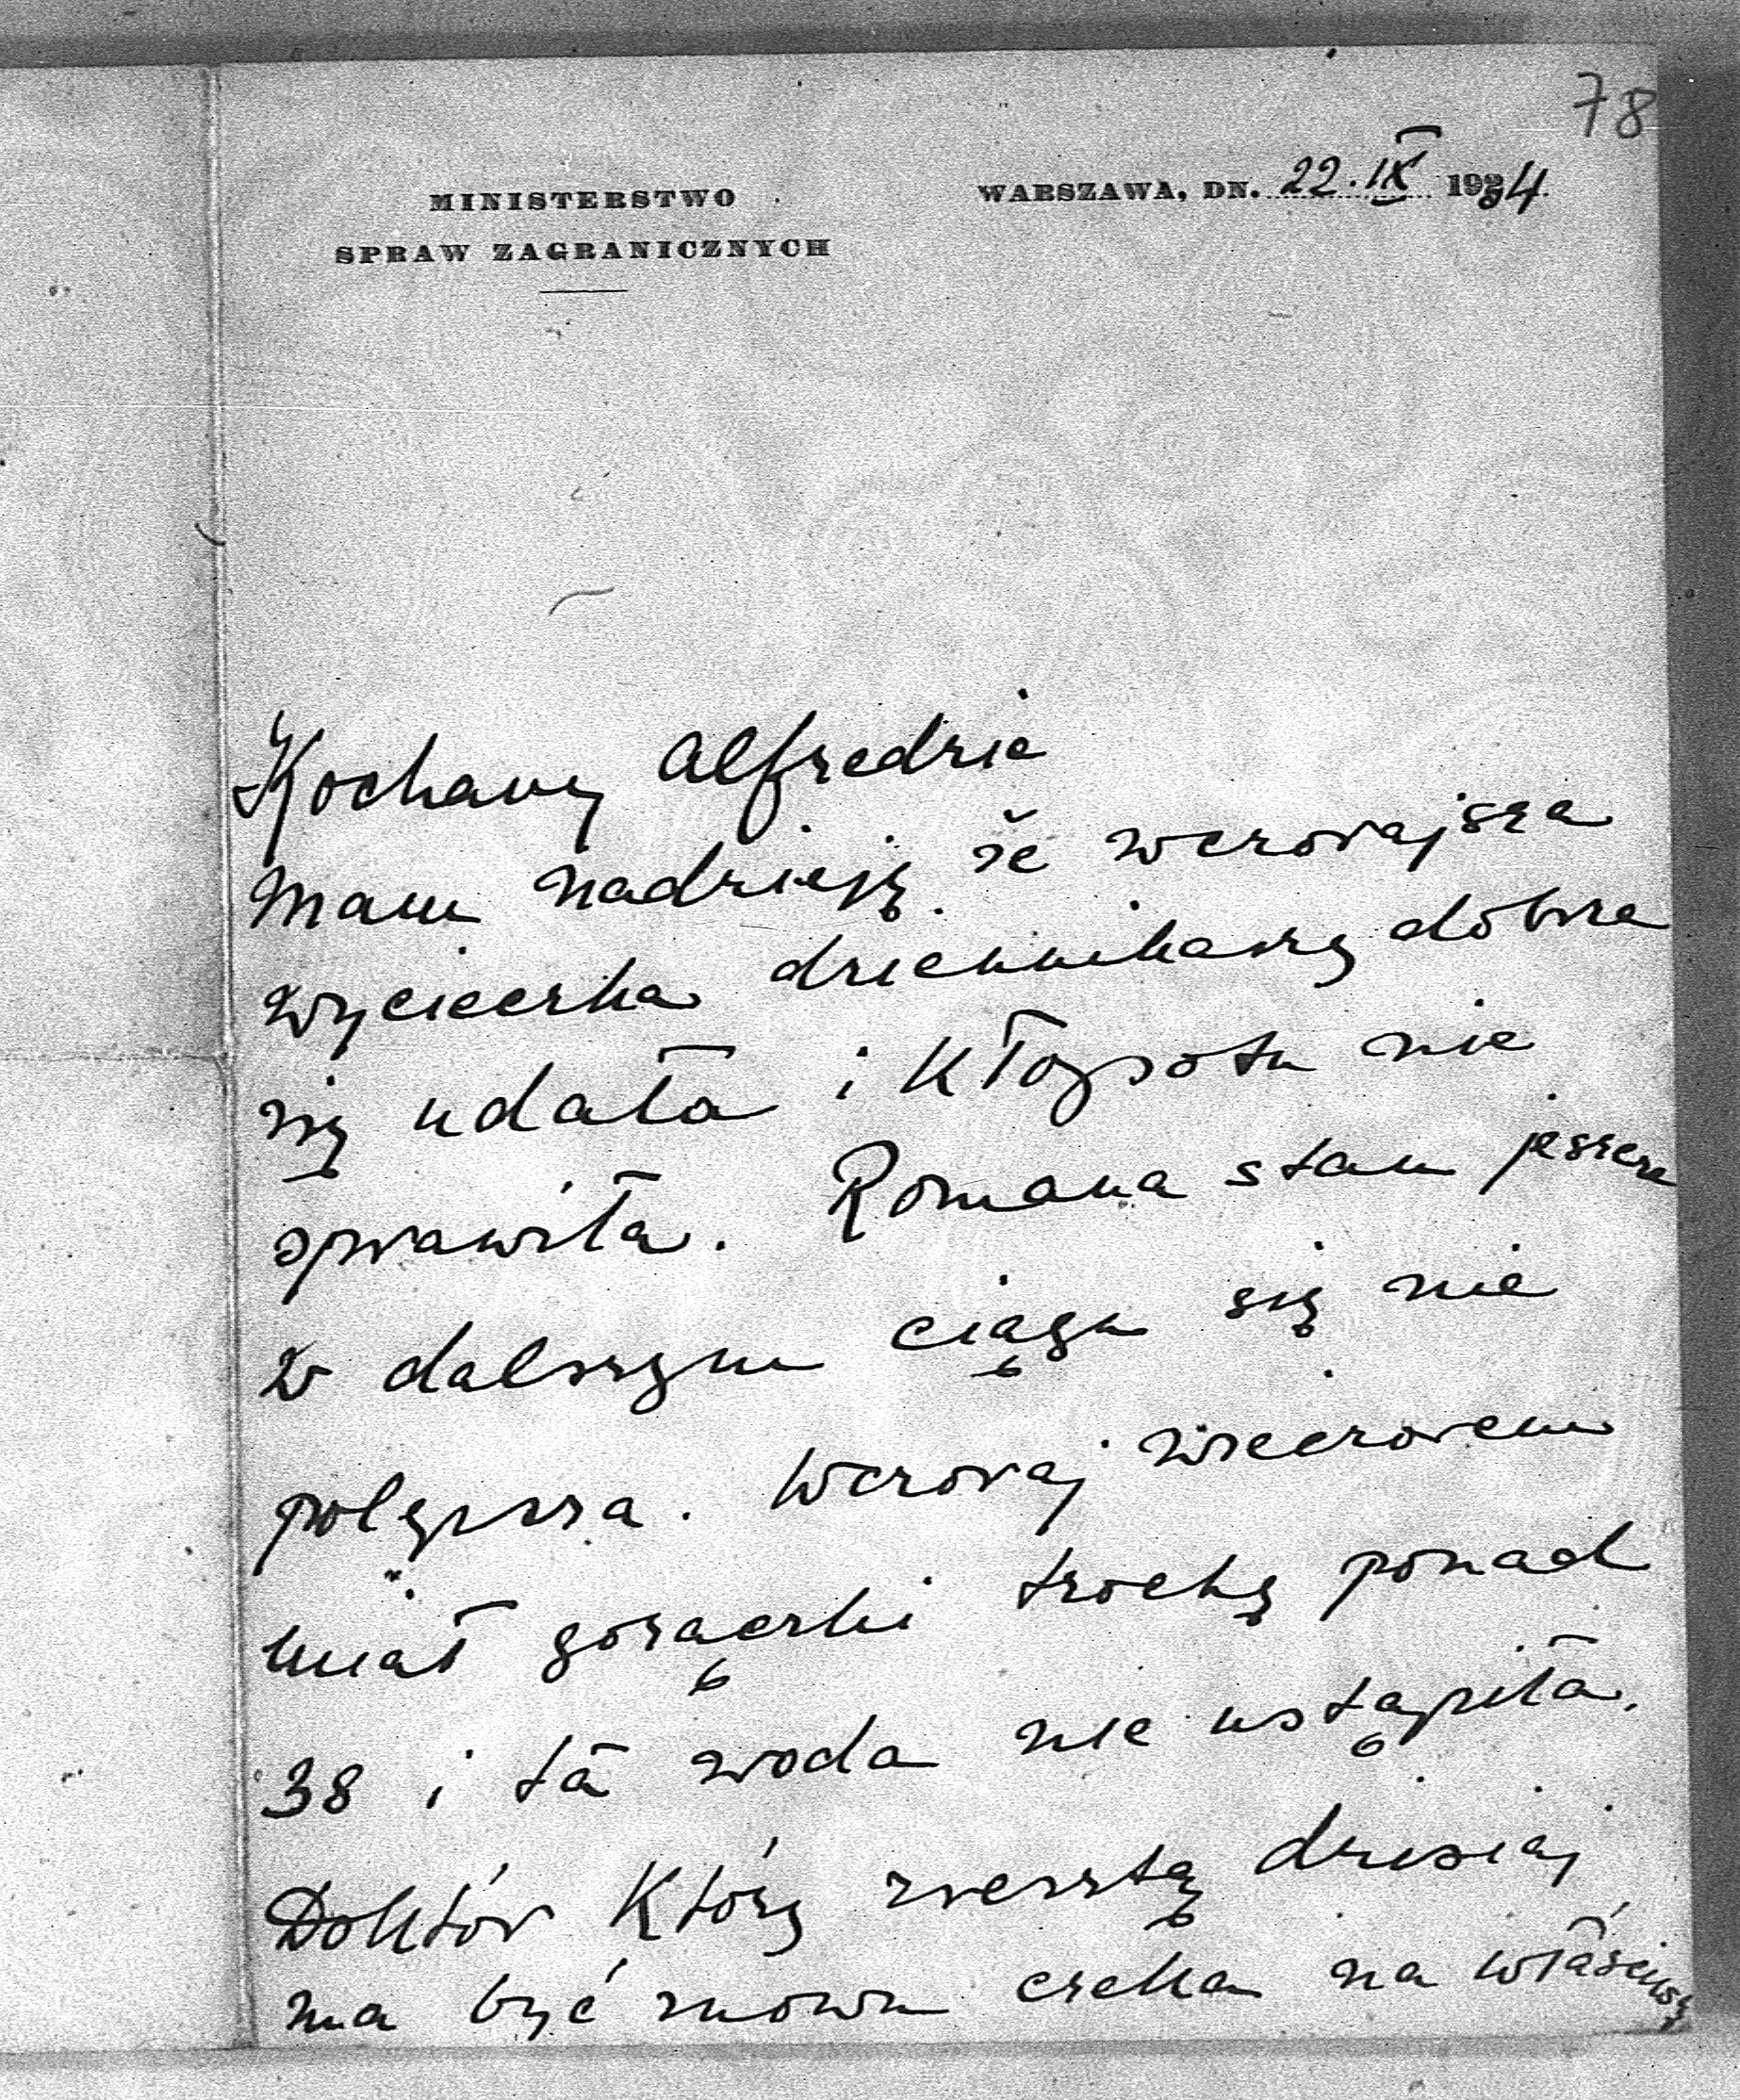 78
MINISTERSTWO
SPRAW ZAGRANICZNYCH
WARSZAWA, DN. 22.IX 1934.
Kochany Alfredzie
Mam nadzieję że wczorajsza
wycieczka dziennikarzy dobrze
się udała i kłopotu nie
sprawiła. Romana stan jeszcze
w dalszym ciągu się nie
polepsza. Wczoraj wieczorem
miał gorączki trochę ponad
38 i ta woda nie ustąpiła.
Doktór który zresztą dzisiaj
ma być znowu czeka na właściwą